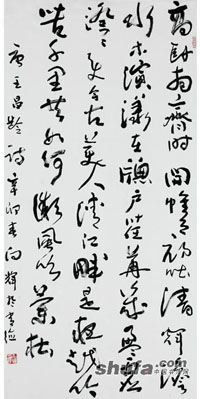 高卧南斋时开帷月初吐清辉澹
水木演漾在窗户荏苒几盈虚
澄澄变今古美人清江畔是夜越吟
苦千里共如何微风吹兰杜
唐王昌龄诗辛卯春向辉于